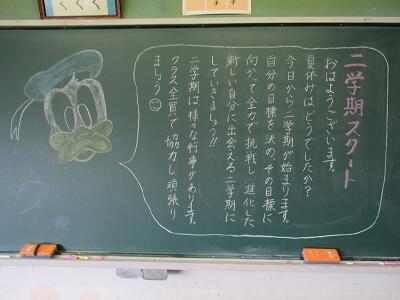 二学期スタート
おはようございます。
夏休みは、どうでしたか？
今日から二学期が始まります。
自分の目標を決め、その目標に
向かって全力で挑戦し、進化した
新しい自分に出会える二学期に
していきましょう!!
二学期は様々な行事があります。
クラス全員で協力し頑張り
ましょう☺